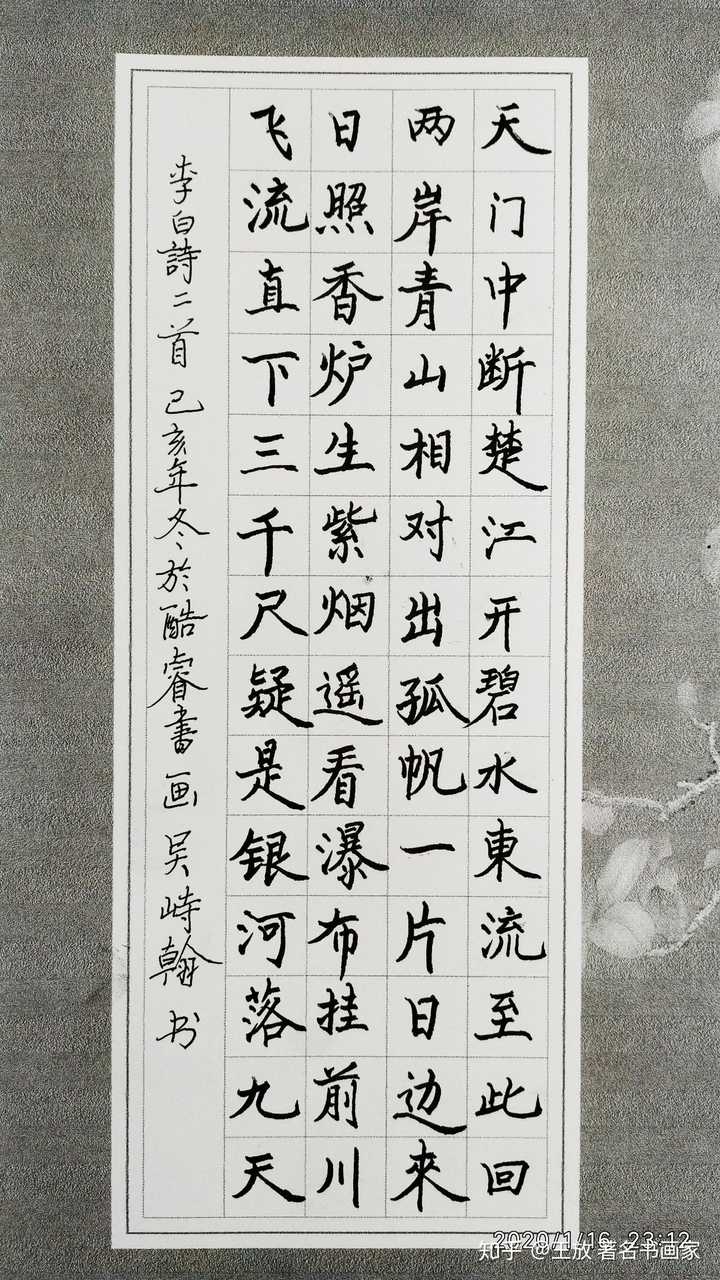 天门中断楚江开碧水東流至此回
两岸青山相对出孤帆一片日边來
日照香炉生紫烟遥看瀑布挂前川
飞流直下三千尺疑是银河落九天
李白詩二首 己亥年冬於酷睿書画 吴峙翰书
2020/1/16 23:12
知乎 @王放 著名书画家